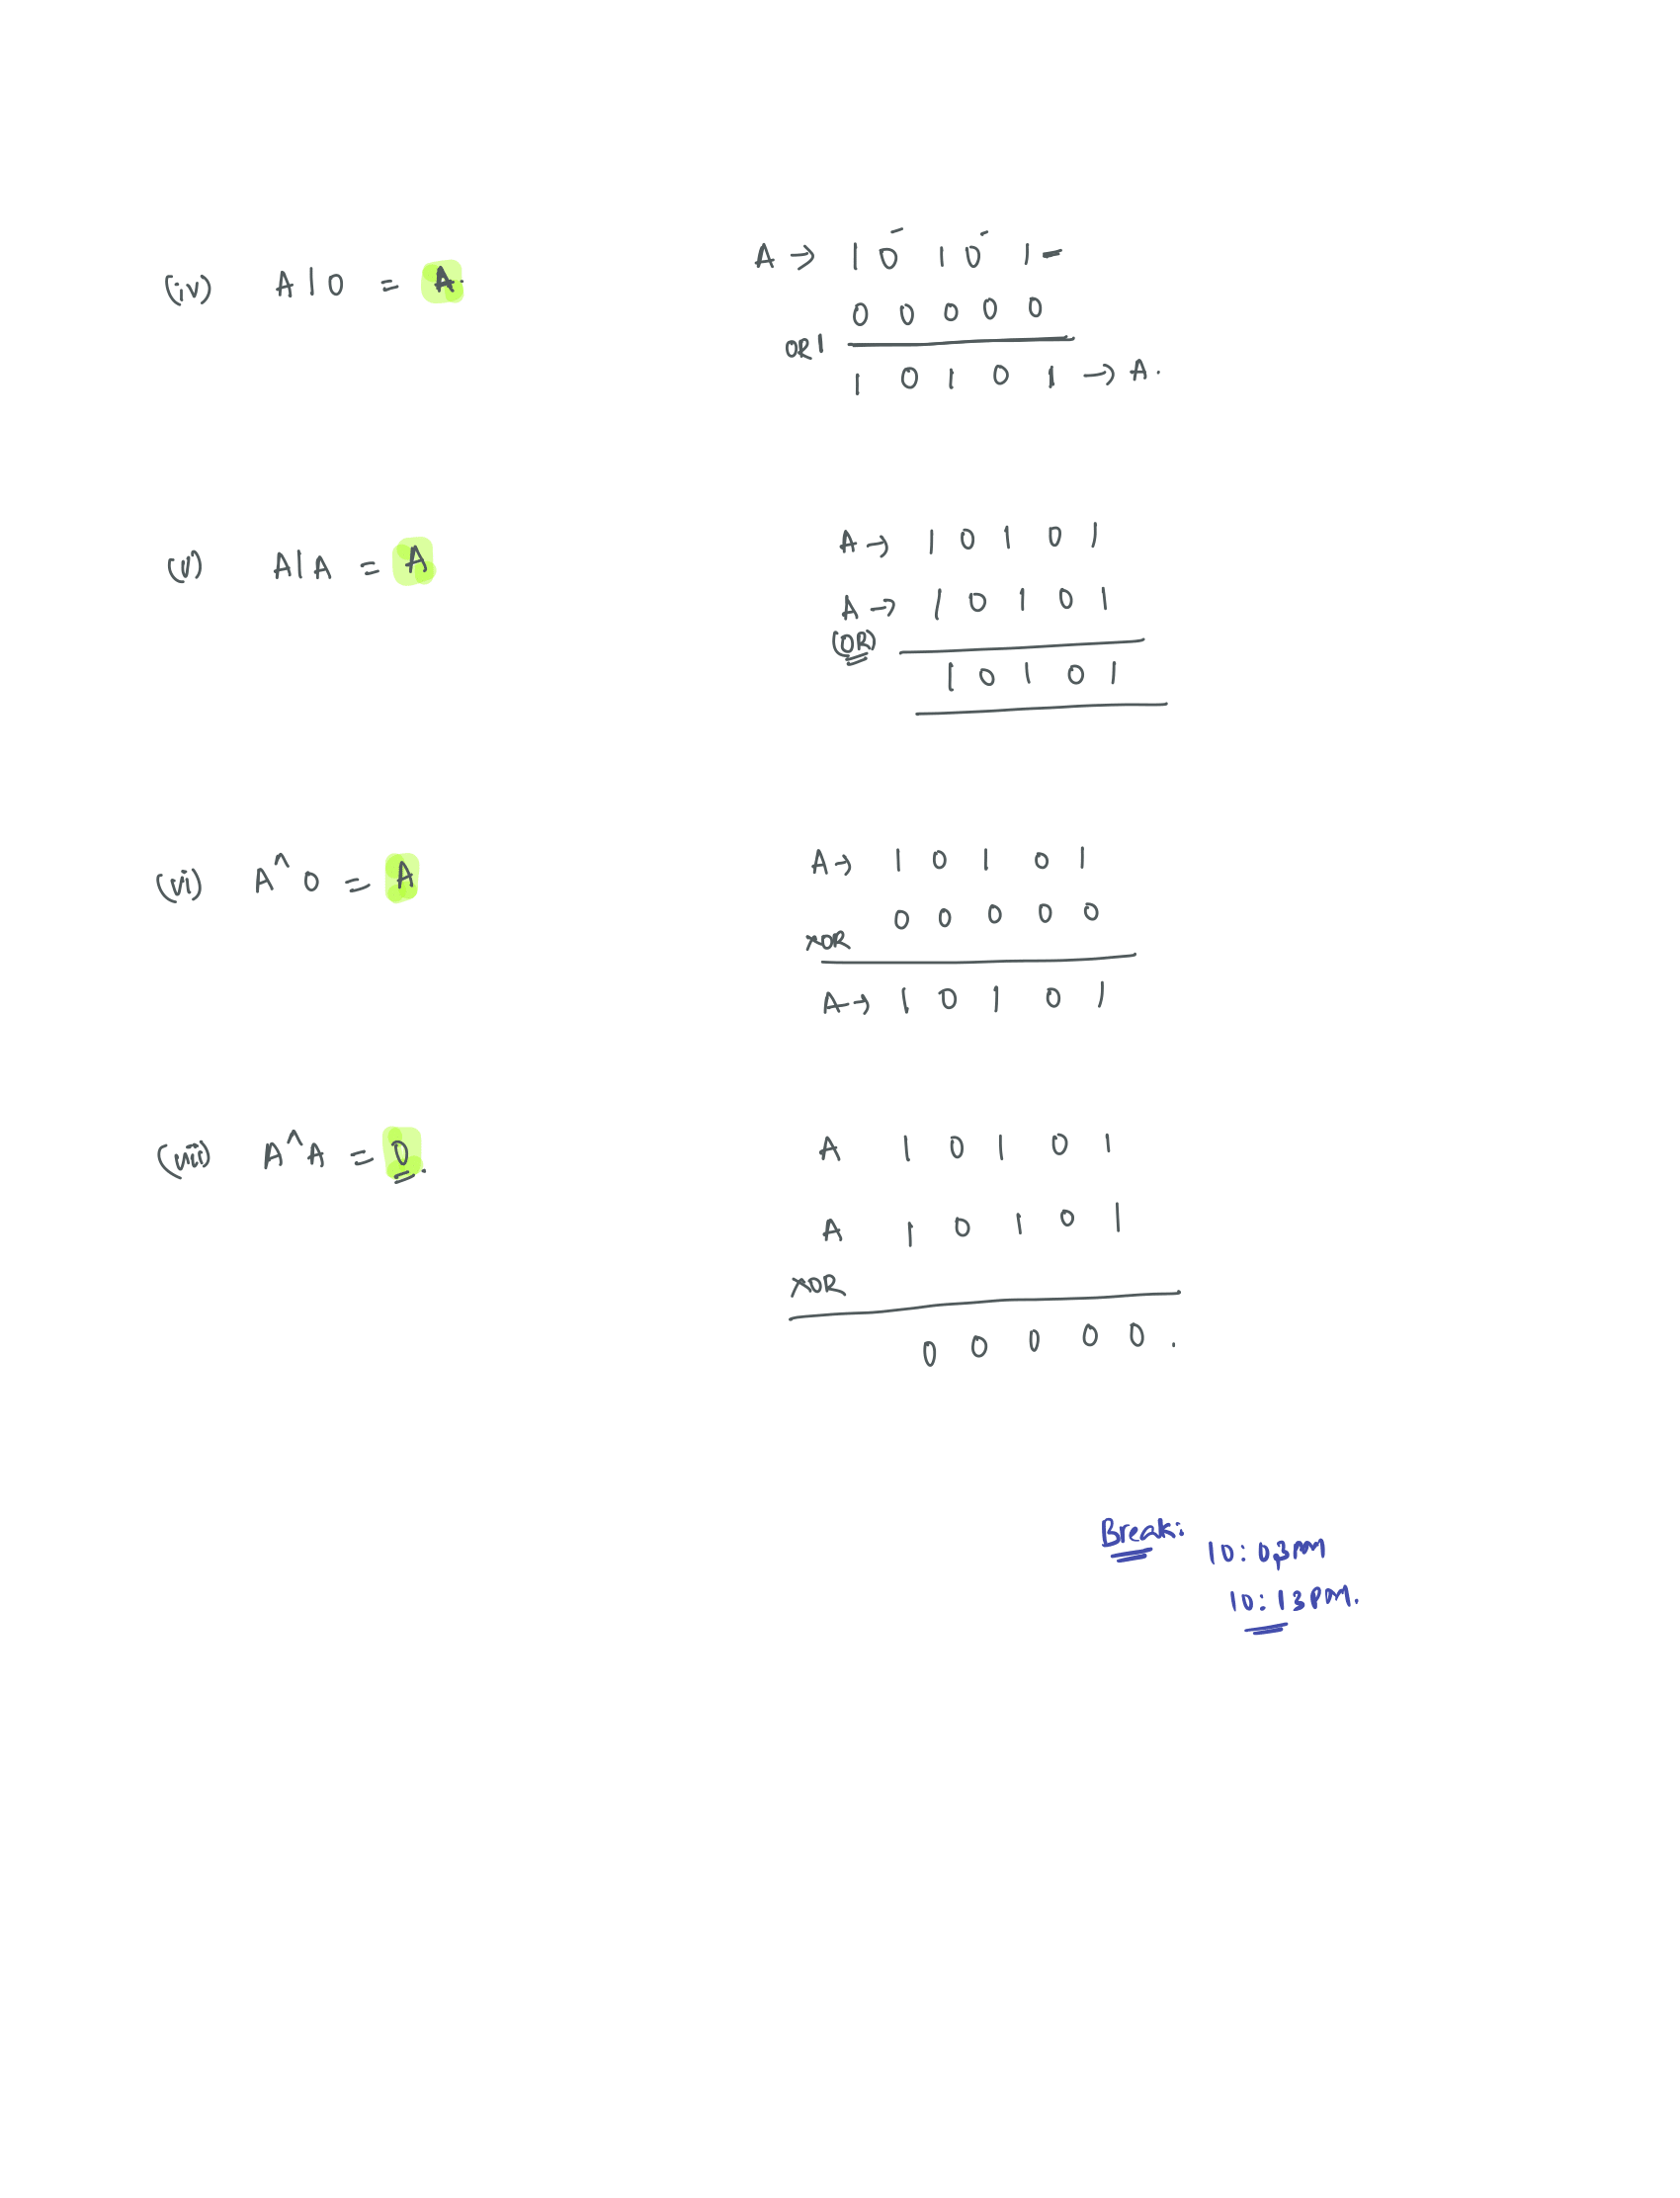 (iv) A | 0 = A.
A → 1 0 1 0 1
0 0 0 0 0
OR |
1 0 1 0 1 → A.
(v) A | A = A
A → 1 0 1 0 1
A → 1 0 1 0 1
(OR)
1 0 1 0 1
(vi) A ^ 0 = A
A → 1 0 1 0 1
0 0 0 0 0
XOR
A → 1 0 1 0 1
(vii) A ^ A = 0.
A 1 0 1 0 1
A 1 0 1 0 1
XOR
0 0 0 0 0 .
Break: 10:03pm
10:13pm.